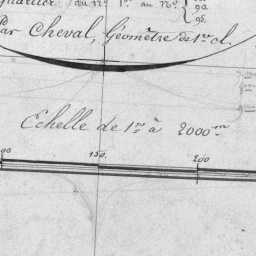 du n.º 1.er au n.º { 1.
92
98.
Par Cheval, Géomètre de 1.re cl.
Echelle de 1.m à 2000 m
150. 200